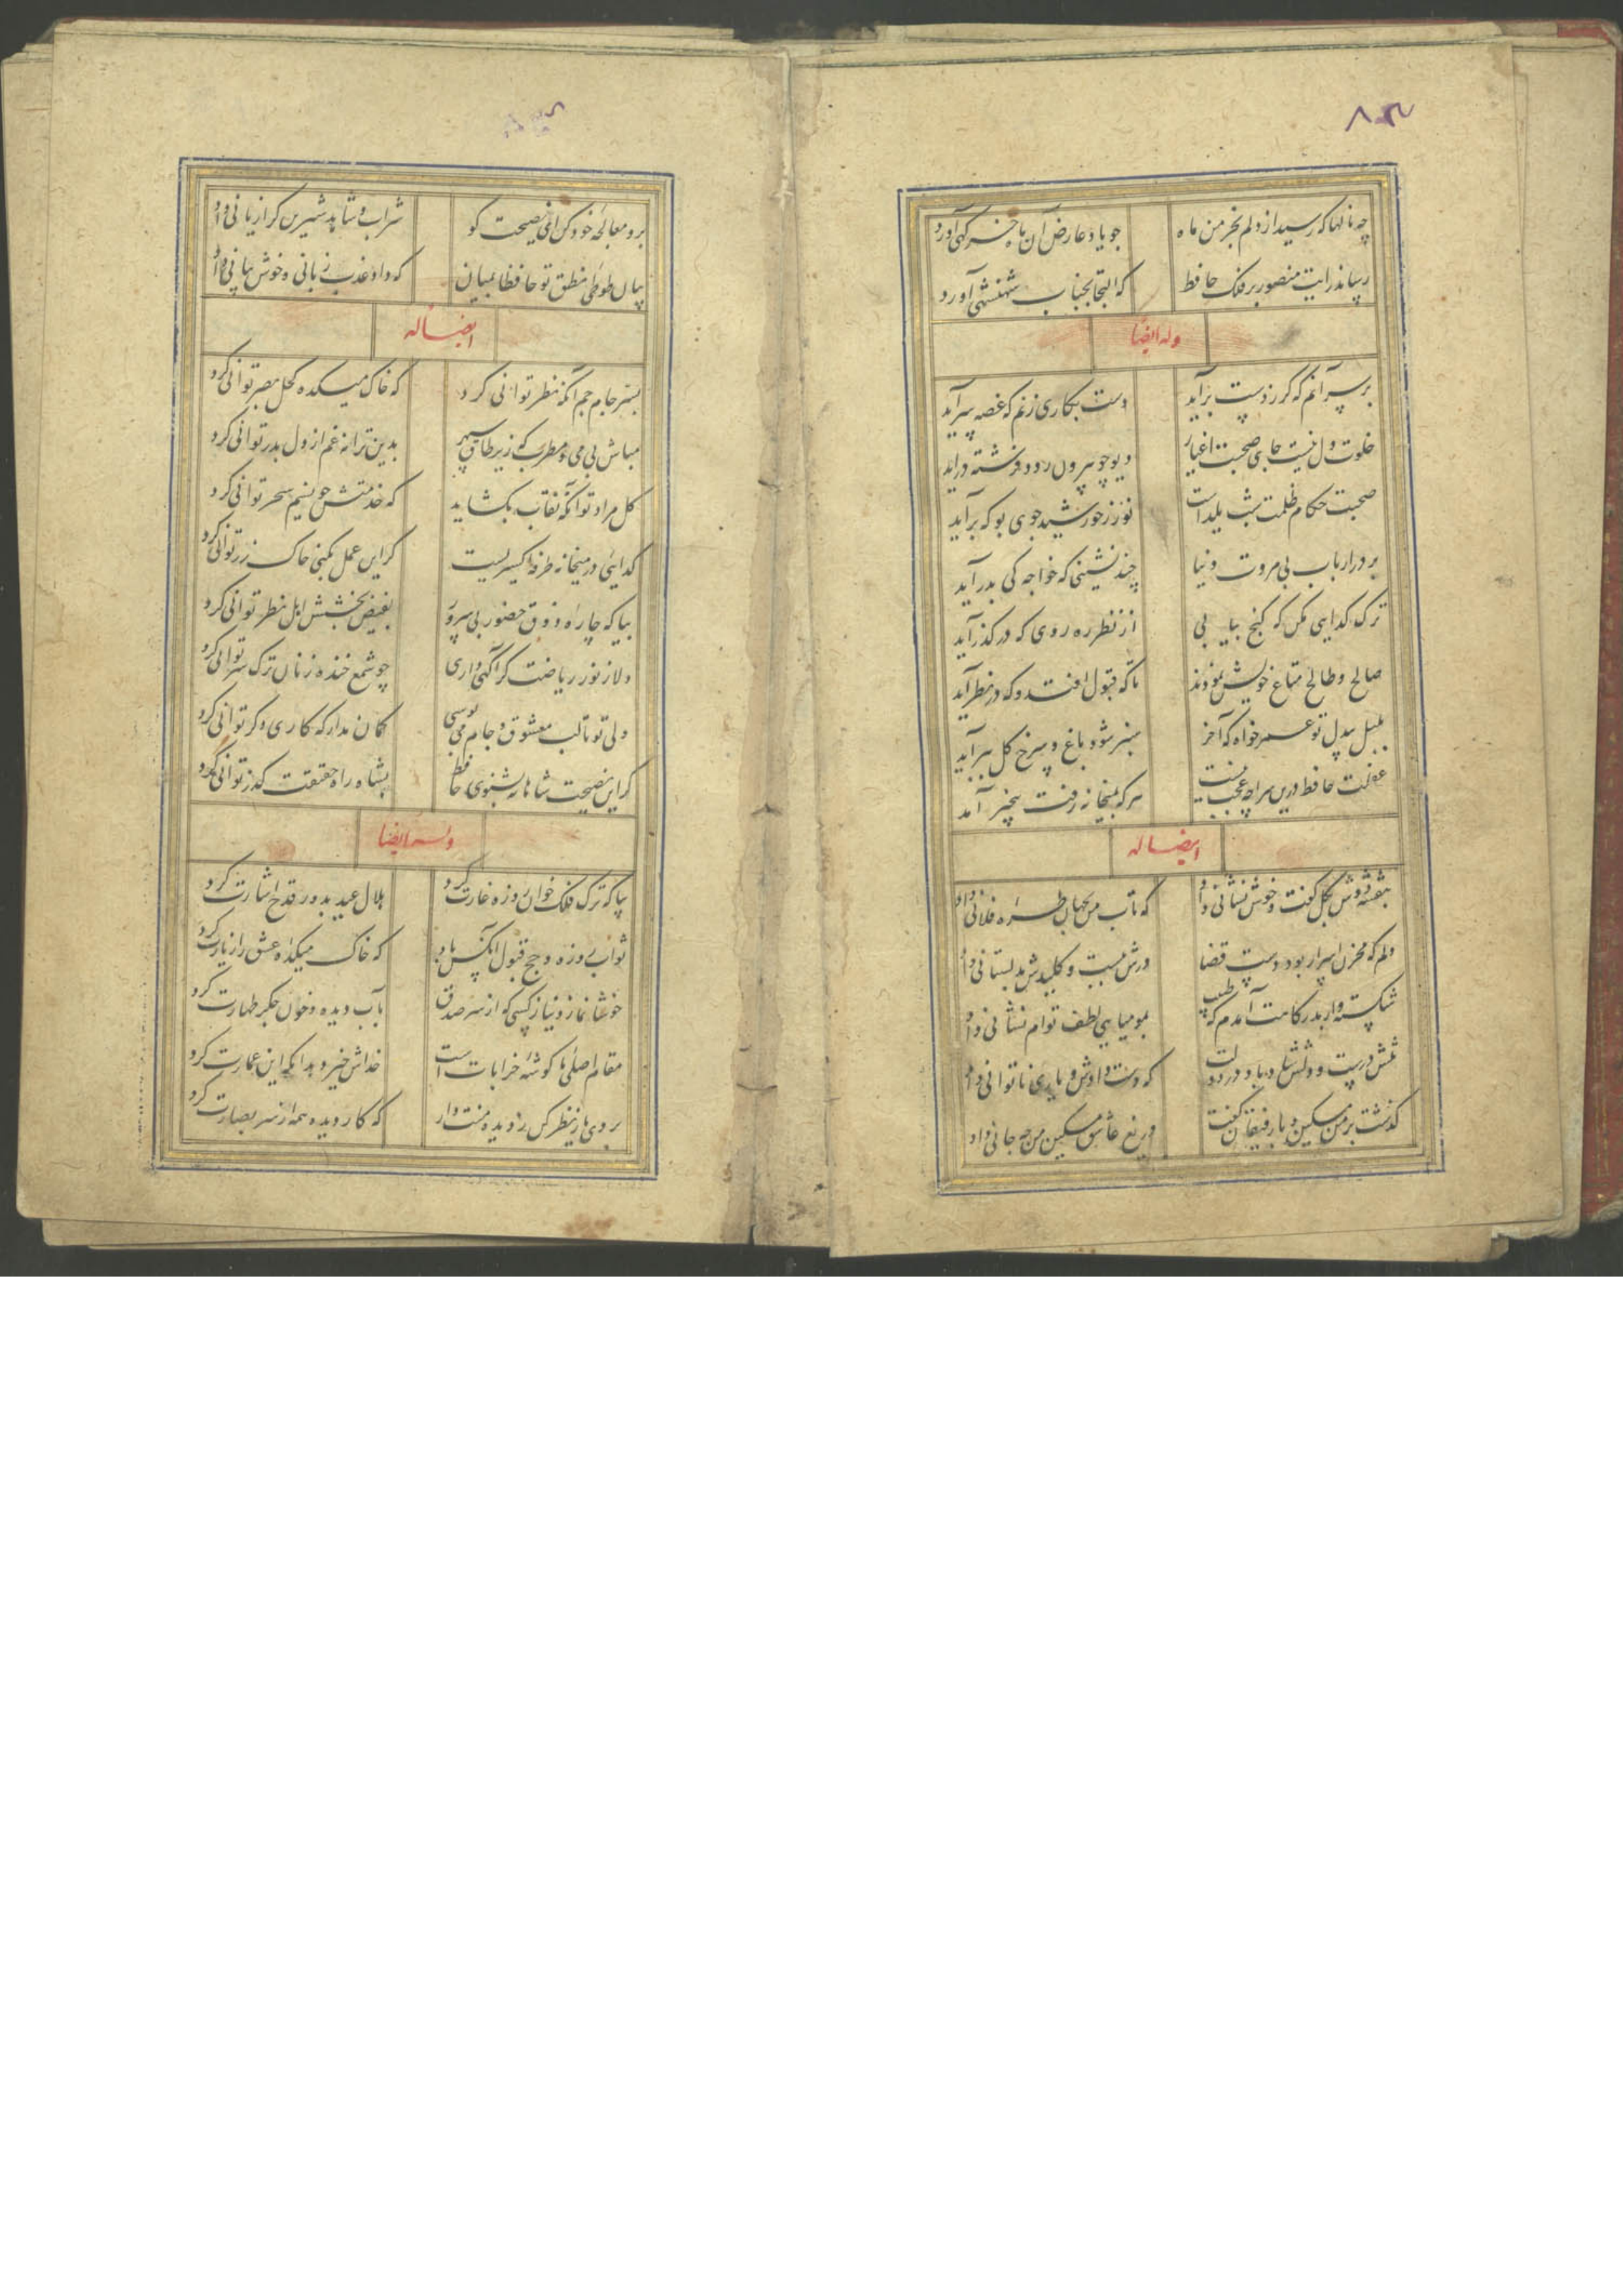 چه نالها که رسید از دلم بخرمن ماه جو یاد عارض آن ماه خرکهی آورد
رساند رایت منصور بر فلک حافظ که التجا بجناب شهنشهی آورد
وله ایضا
بر سر آنم که کر ز دست برآید دست بکاری زنم که غصه سرآید
خلوت دل نیست جای صحبت اغیار دیو چو بیرون رود فرشته درآید
صحبت حکام ظلمت شب یلداست نور ز خورشید جوی بو که برآید
بر در ارباب بی مروت دنیا چند نشینی که خواجه کی بدر آید
ترک کدایی مکن که کنج بیابی از نظر ره روی که در کذر آید
صالح و طالح متاع خویش نمودند تا که قبول افتد و که در نظر آید
بلبل بیدل تو عمر خواه که آخر سبز شود باغ و سرخ کل ببر آید
غفلت حافظ درین سراچه عجب نیست هر که بمیخانه رفت بیخبر آمد
ایضا له
بنفشه دوش بکل کفت و خوش نشانی داد که تاب من بجهان طره فلانی داد
دلم که مخزن اسرار بود دست قضا درش ببست و کلیدش بدلستانی داد
شکسته وار بدرکاهت آمدم که طبیب بمومیایی لطف توام نشانی داد
تنش درست و دلش شاد باد در دولت که دست دادش و یاری ناتوانی داد
کذشت بر من مسکین و با رفیقان کفت دریغ عاشق مسکین من چه جانی داد
برو معالجه خود کن ای نصیحت کو شراب و شاهد شیرین کرا زیانی داد
بسان طوطی نطق تو حافظا بمیان که داد عذب زبانی و خوش بیانی داد
ایضا له
بسر جام جم آنکه نظر توانی کرد که خاک میکده کحل بصر توانی کرد
مباش بی می و مطرب که زیر طاق سپهر بدین ترانه غم از دل بدر توانی کرد
کل مراد تو آنکه نقاب بکشاید که خدمتش چو نسیم سحر توانی کرد
کدایی در میخانه طرفه اکسیریست کر این عمل بکنی خاک زر توانی کرد
بیا که چاره ذوق حضور بفیض بخشش اهل نظر توانی کرد
دلا ز نور ریاضت کر آکهی داری چو شمع خنده زنان ترک سر توانی کرد
ولی تو تا لب معشوق و جام می بوسی کمان مدار که کاری دکر توانی کرد
کر این نصیحت شاهانه بشنوی حافظ بشاه راه حقیقت کذر توانی کرد
وله ایضا
بیا که ترک فلک خوان روزه غارت کرد هلال عید بدور قدح اشارت کرد
ثواب روزه و حج قبول آنکس برد که خاک میکده عشق را زیارت کرد
خوشا نماز و نیاز کسی که از سر صدق بآب دیده و خون جکر طهارت کرد
مقام اصلی ما کوشه خرابات است خداش خیر دهد آنکه این عمارت کرد
بروی یار نظر کن ز دیده منت دار که کار دیده همه از سر بصارت کرد